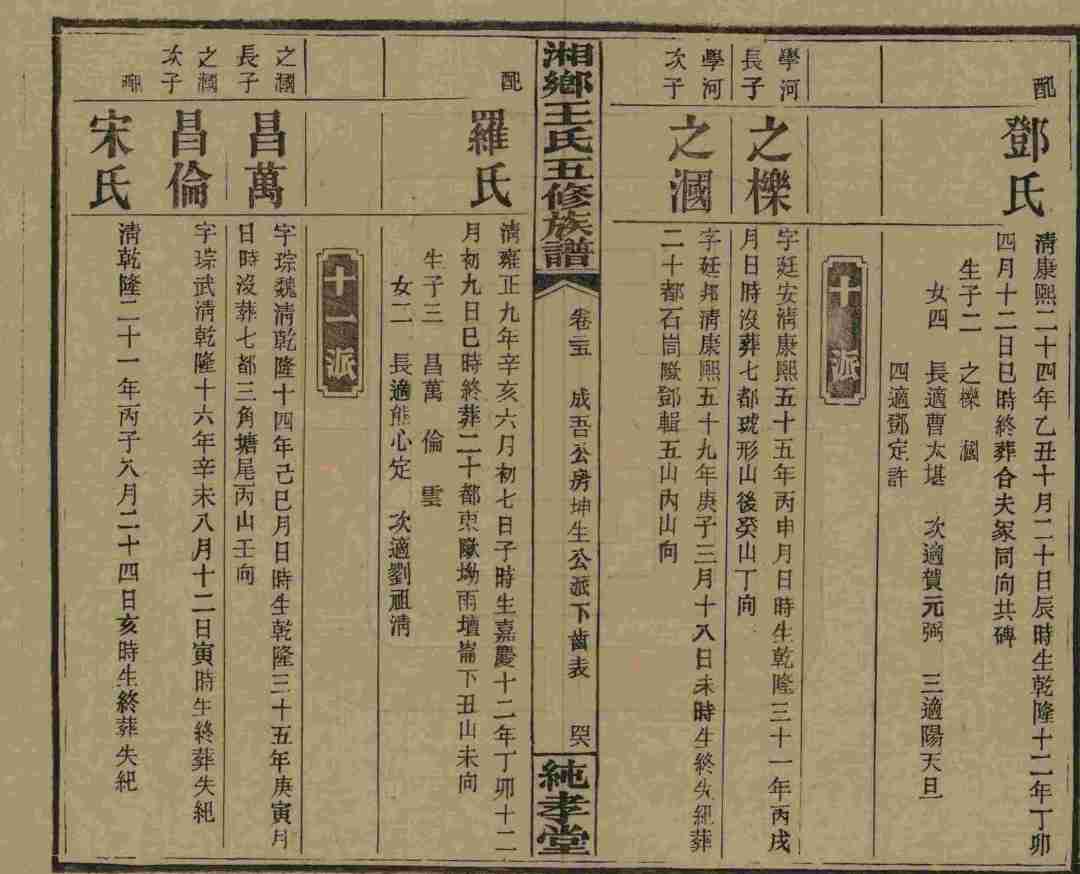 配
鄧氏
清康熙二十四年乙丑十月二十日辰時生乾隆十二年丁卯
四月十二日巳時終葬合夫冢同向共碑
生子二 之櫟 漍
女四 長適曹大堪 次適賀元弼 三適陽天旦
四適鄧定許
十派
學河
長子
之櫟
字廷安清康熙五十五年丙申月日時生乾隆三十一年丙戌
月日時沒葬七都虎形山後癸山丁向
學河
次子
之漍
字廷邦清康熙五十九年庚子三月十八日未時生終失紀葬
二十都石崗隞鄧輯五山內山向
湘鄉王氏五修族譜
卷 成吾公房坤生公派下齒表
純孝堂
配
羅氏
清雍正九年辛亥六月初七日子時生嘉慶十二年丁卯十二
月初九日巳時終葬二十都東隞坳雨壇崙下丑山未向
生子三 昌萬 倫 雲
女二 長適熊心定 次適劉祖清
十一派
之漍
長子
昌萬
字琮魏清乾隆十四年己巳月日時生乾隆三十五年庚寅月
日時沒葬七都三角塘尾丙山壬向
之漍
次子
昌倫
字琮武清乾隆十六年辛未八月十二日寅時生終葬失紀
配
宋氏
清乾隆二十一年丙子八月二十四日亥時生終葬失紀